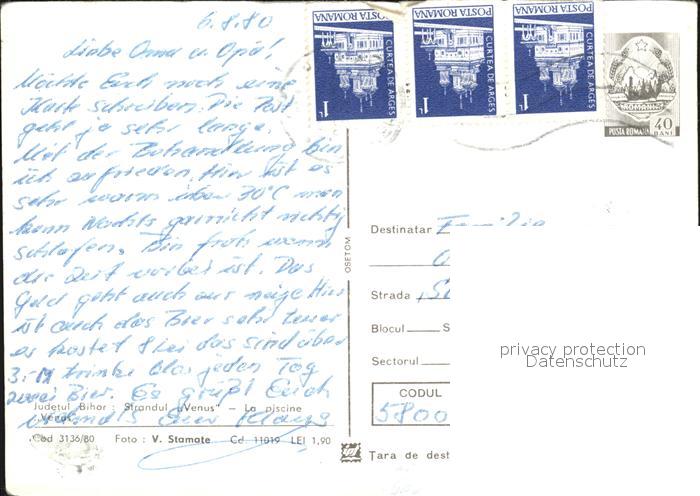 6.8.80
Liebe Oma u. Opa!
Möchte Euch noch eine
Karte schreiben. Die Post
geht ja sehr lange.
Mit der Behandlung bin
ich zufrieden. Hier ist es
sehr warm über 30°C man
kann Nachts garnicht richtig
schlafen. Bin froh wenn
die Zeit vorbei ist. Das
Geld geht auch zur neige Hier
ist auch das Bier sehr teuer
es kostet 8 Lei das sind über
3.- M trinke blos jeden Tag
zwei Bier. Es grüßt Euch
Euer Klaus
Județul Bihor : Strandul „Venus" — La piscine
„Venus"
Cod 3136/80 Foto : V. Stamate Cd. 11019 LEI 1,90
OSETOM
POSTA ROMANA
CURTEA DE ARGES
1L
POSTA ROMANA
CURTEA DE ARGES
1L
POSTA ROMANA
CURTEA DE ARGES
1L
ROMANIA
POSTA ROMANA 40 BANI
Destinatar Familia
Strada
Blocul S
Sectorul
CODUL
5800
Țara de dest
privacy protection
Datenschutz